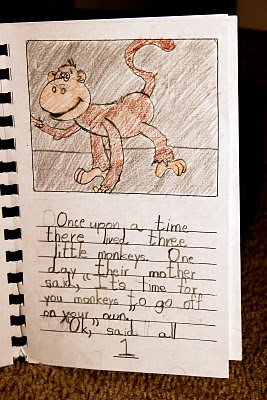 Once upon a time
there lived three
little monkeys. One
day, their mother
said, "It's time for
you monkeys to go off
on your own."
"Ok, said all
1